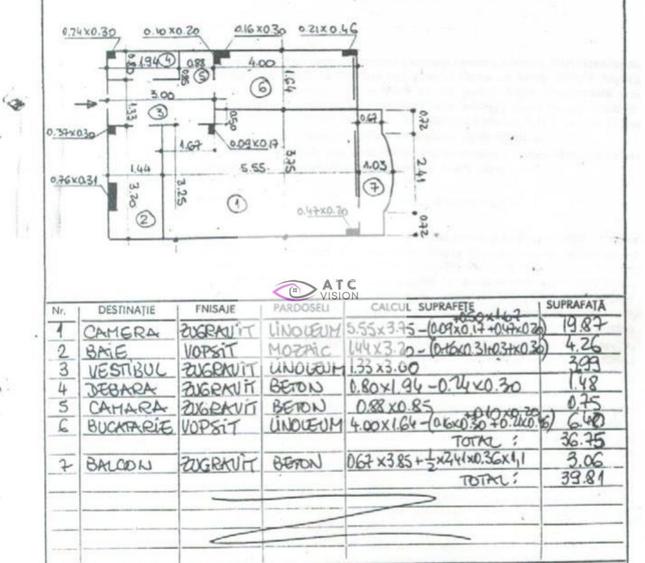 0.24x0.30 0.10x0.20 0.16x0.30 0.21x0.46
0.80 1.94 4 0.88 4.00
0.85 5 6 1.64
3.00
1.33 3 0.50 0.67 0.72
0.37x0.30 1.67 0.09x0.17
1.44 5.55 3.75 1.03 2.41
0.76x0.31 3.20 3.25 1 7
2 0.47x0.20 0.72
ATC
VISION
Nr. DESTINAŢIE FNISAJE PARDOSELI CALCUL SUPRAFEŢE SUPRAFAŢĂ
+0.50x1.67
1 CAMERA ZUGRAVIT LINOLEUM 5.55x3.75-(0.09x0.17+0.47x0.20) 19.87
2 BAIE VOPSIT MOZAIC 1.44x3.20-(0.76x0.31+0.37x0.30) 4.26
3 VESTIBUL ZUGRAVIT LINOLEUM 1.33x3.00 3.99
4 DEBARA ZUGRAVIT BETON 0.80x1.94-0.24x0.30 1.48
5 CAMARA ZUGRAVIT BETON 0.88x0.85 0.75
+0.10x0.20
6 BUCATARIE VOPSIT LINOLEUM 4.00x1.64-(0.16x0.30+0.21x0.46) 6.40
TOTAL: 36.75
7 BALCON ZUGRAVIT BETON 0.67x3.85+½x2.41x0.36x1,1 3.06
TOTAL: 39.81